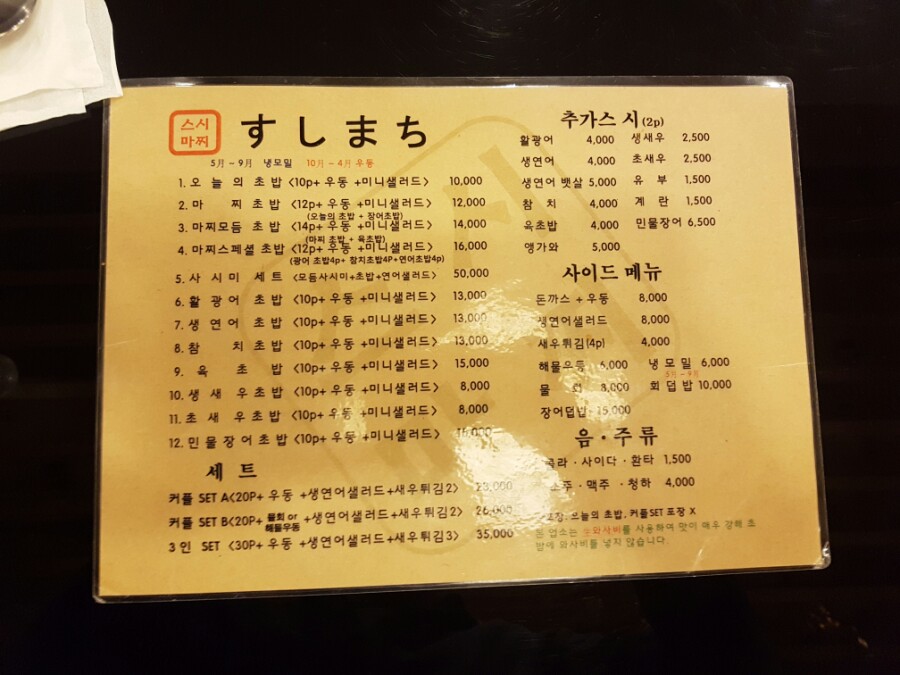 스시
마찌
すしまち
5月 - 9月 냉모밀 10月 - 4月 우동
1. 오늘의초밥 <10p+ 우동 +미니샐러드> 10,000
2. 마찌초밥 <12p+ 우동 +미니샐러드> 12,000
(오늘의 초밥 + 장어초밥)
3. 마찌모듬 초밥 <14p+ 우동 +미니샐러드> 14,000
(마찌 초밥 + 육초밥)
4. 마찌스페셜 초밥 <12p+ 우동 +미니샐러드> 16,000
(광어 초밥4p+ 참치초밥4P+연어초밥4p)
5. 사시미 세트 <모듬사시미+초밥+연어샐러드> 50,000
6. 활광어초밥 <10p+ 우동 +미니샐러드> 13,000
7. 생연어초밥 <10p+ 우동 +미니샐러드> 13,000
8. 참치초밥 <10p+ 우동 +미니샐러드> 13,000
9. 육초밥 <10p+ 우동 +미니샐러드> 15,000
10. 생새우초밥 <10p+ 우동 +미니샐러드> 8,000
11. 초새우초밥 <10p+ 우동 +미니샐러드> 8,000
12. 민물장어초밥 <10p+ 우동 +미니샐러드> 16,000
세트
커플 SET A<20P+ 우동 +생연어샐러드+새우튀김2> 23,000
커플 SET B<20P+ 물회 or 해물우동 +생연어샐러드+새우튀김2> 26,000
3인 SET <30P+ 우동 +생연어샐러드+새우튀김3> 35,000
추가스시(2p)
활광어 4,000 생새우 2,500
생연어 4,000 초새우 2,500
생연어 뱃살 5,000 유부 1,500
참치 4,000 계란 1,500
육초밥 4,000 민물장어 6,500
앵가와 5,000
사이드 메뉴
돈까스 + 우동 8,000
생연어샐러드 8,000
새우튀김(4p) 4,000
해물우동 6,000 냉모밀 6,000
5月-9月
물회 8,000 회덥밥 10,000
장어덥밥 15,000
음·주류
콜라 · 사이다 · 환타 1,500
소주 · 맥주 · 청하 4,000
포장: 오늘의 초밥, 커플SET 포장 X
본 업소는 생와사비를 사용하여 맛이 매우 강해 초
밥에 와사비를 넣지 않습니다.